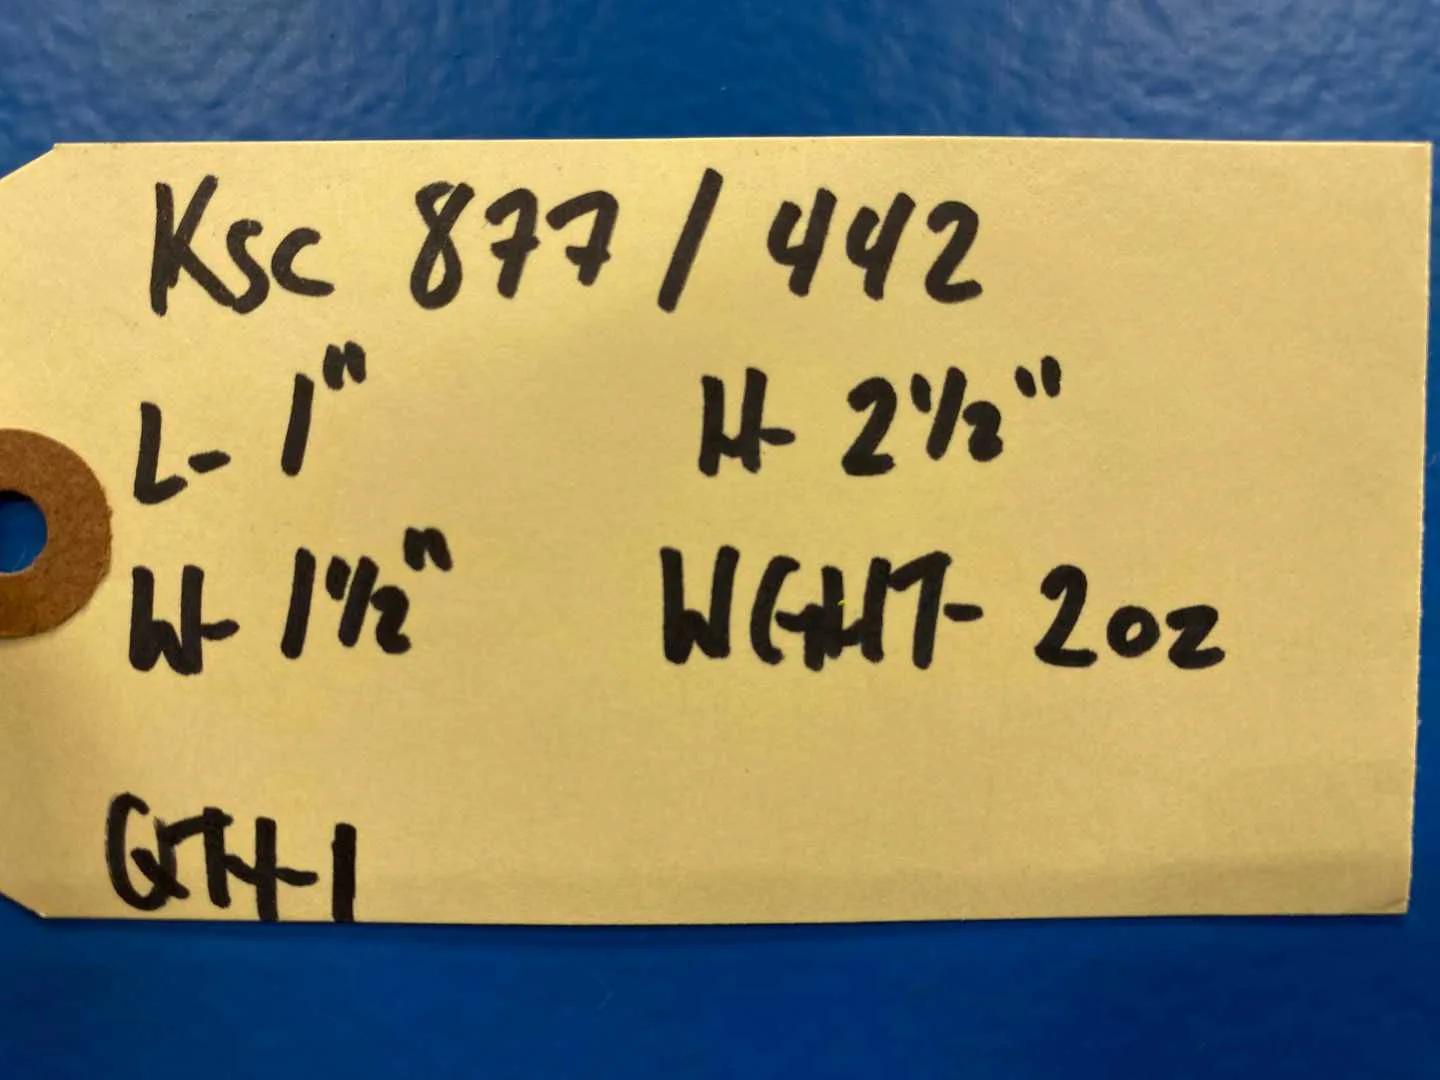 Ksc 877 / 442
L- 1" H- 2 1/2"
W- 1 1/2" WGHT- 2oz
QTY-1